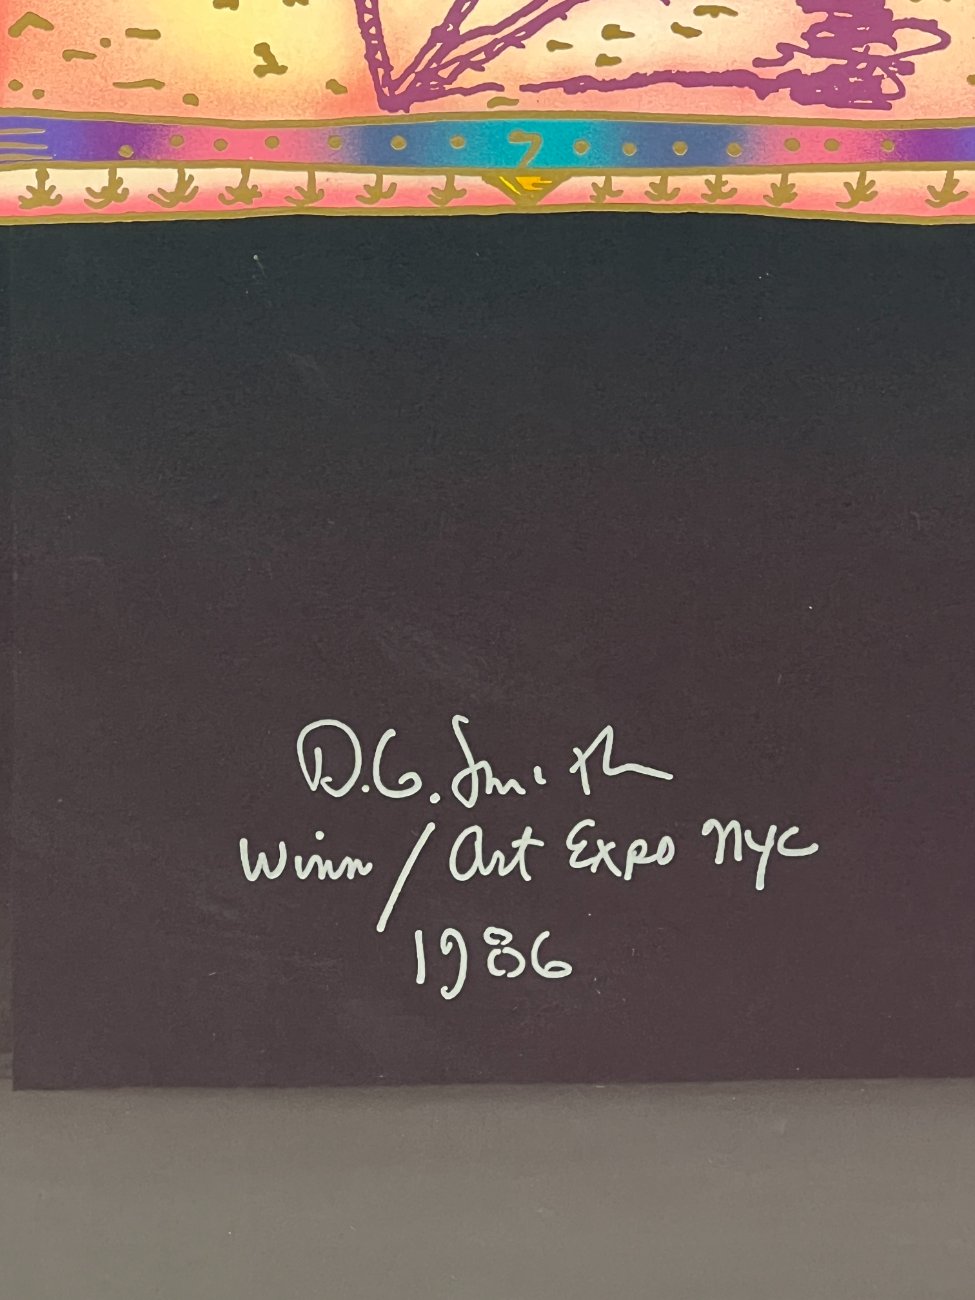 D.G. Smith
Winn / Art Expo NYC
1986